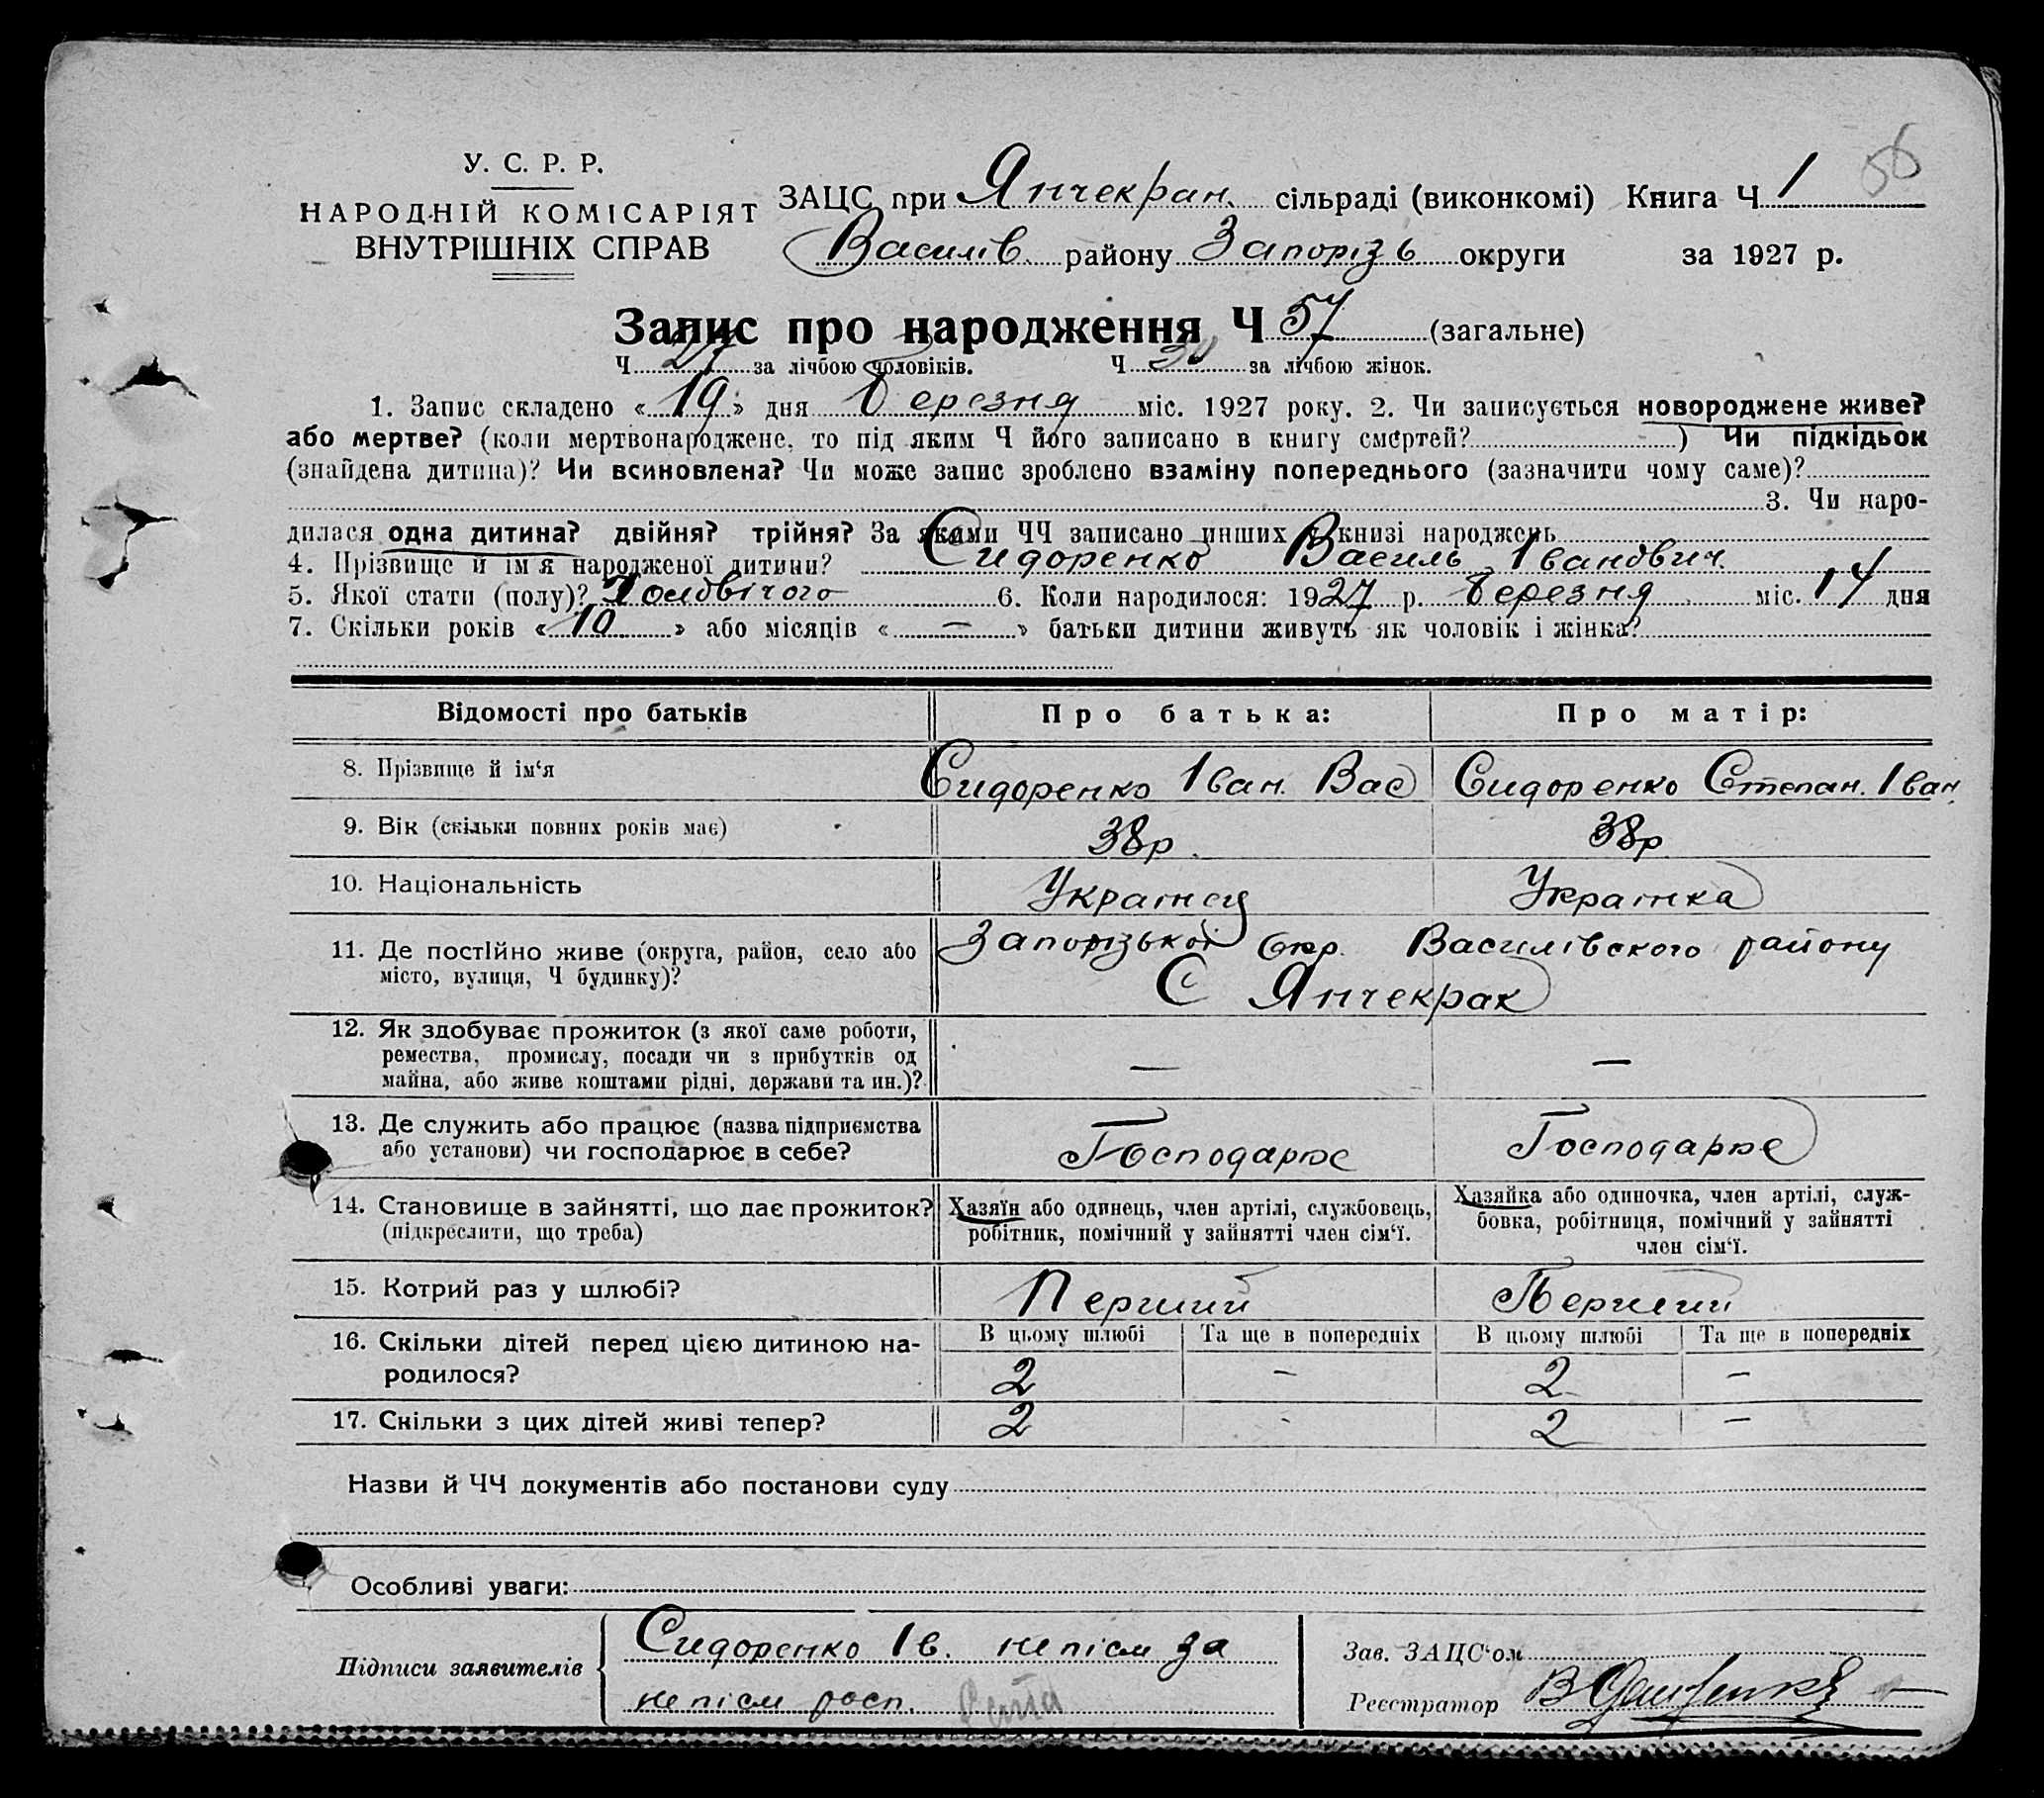 56
У. С. Р. Р.
НАРОДНІЙ КОМІСАРІЯТ
ВНУТРІШНІХ СПРАВ
ЗАЦС при Янчекран. сільраді (виконкомі) Книга Ч 1
Василів. району Запорізь округи за 1927 р.
Запис про народження Ч 57 (загальне)
Ч 27 за лічбою чоловіків. Ч 30 за лічбою жінок.
1. Запис складено « 19 » дня березня міс. 1927 року. 2. Чи записується новороджене живе?
або мертве? (коли мертвонароджене, то під яким Ч його записано в книгу смертей? ) Чи підкідьок
(знайдена дитина)? Чи всиновлена? Чи може запис зроблено взаміну попереднього (зазначити чому саме)?
3. Чи наро-
дилася одна дитина? двійня? трійня? За якими ЧЧ записано инших у книзі народжень
4. Прізвище й ім'я народженої дитини? Сидоренко Василь Іванович.
5. Якої стати (полу)? 6. Коли народилося: 1927 р. березня міс. 14 дня
7. Скільки років « 10 » або місяців « — » батьки дитини живуть як чоловік і жінка?
Відомості про батьків Про батька: Про матір:
8. Прізвище й ім'я Сидоренко Іван. Вас Сидоренко Степан. Іван.
9. Вік (скільки повних років має) 38р. 38р
10. Національність Українец Українка
11. Де постІйно живе (округа, район, село або Запорізької Окр. Василівского району
місто, вулиця, Ч будинку)? С Янчекрак
12. Як здобуває прожиток (з якої саме роботи,
ремества, промислу, посади чи з прибутків од — —
майна, або живе коштами рідні, держави та ин.)?
13. Де служить або працює (назва підприємства
або установи) чи господарює в себе? Господарює Господарює
14. Становище в зайнятті, що дає прожиток? Хазяїн або одинець, член артілі, службовець, Хазяйка або одиночка, член артілі, служ-
(підкреслити, що треба) робітник, помічний у зайнятті член сім'ї. бовка, робітниця, помічний у зайнятті
член сім'ї.
15. Котрий раз у шлюбі? Перший Перший
16. Скільки дітей перед цією дитиною на- В цьому шлюбі Та ще в попередніх В цьому шлюбі Та ще в попередніх
родилося? 2 — 2 —
17. Скільки з цих дітей живі тепер? 2 - 2 —
Назви й ЧЧ документів або постанови суду
Особливі уваги:
Підписи заявителів Сидоренко Ів. непісм за
непісм росп.
Зав. ЗАЦС'ом
Реєстратор